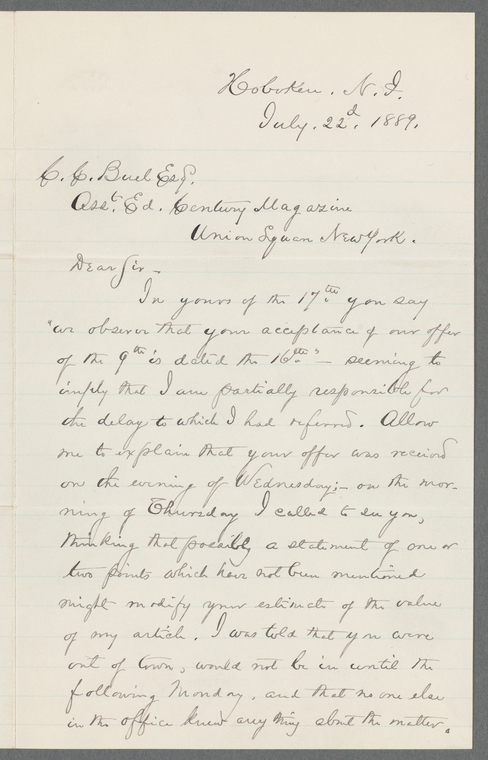 Hoboken. N. J.
July. 22d. 1889.
C. C. Buel Esq.
Asst. Ed. Century Magazine
Union Square New York.
Dear Sir—
In yours of the 17th you say
"we observe that your acceptance of our offer
of the 9th is dated the 16th" — seeming to
imply that I am partially responsible for
the delay to which I had referred. Allow
me to explain that your offer was received
on the evening of Wednesday;— on the mor-
ning of Thursday I called to see you,
thinking that possibly a statement of one or
two points which have not been mentioned
might modify your estimate of the value
of my article. I was told that you were
out of town, would not be in until the
following Monday, and that no one else
in the office knew any thing about the matter.